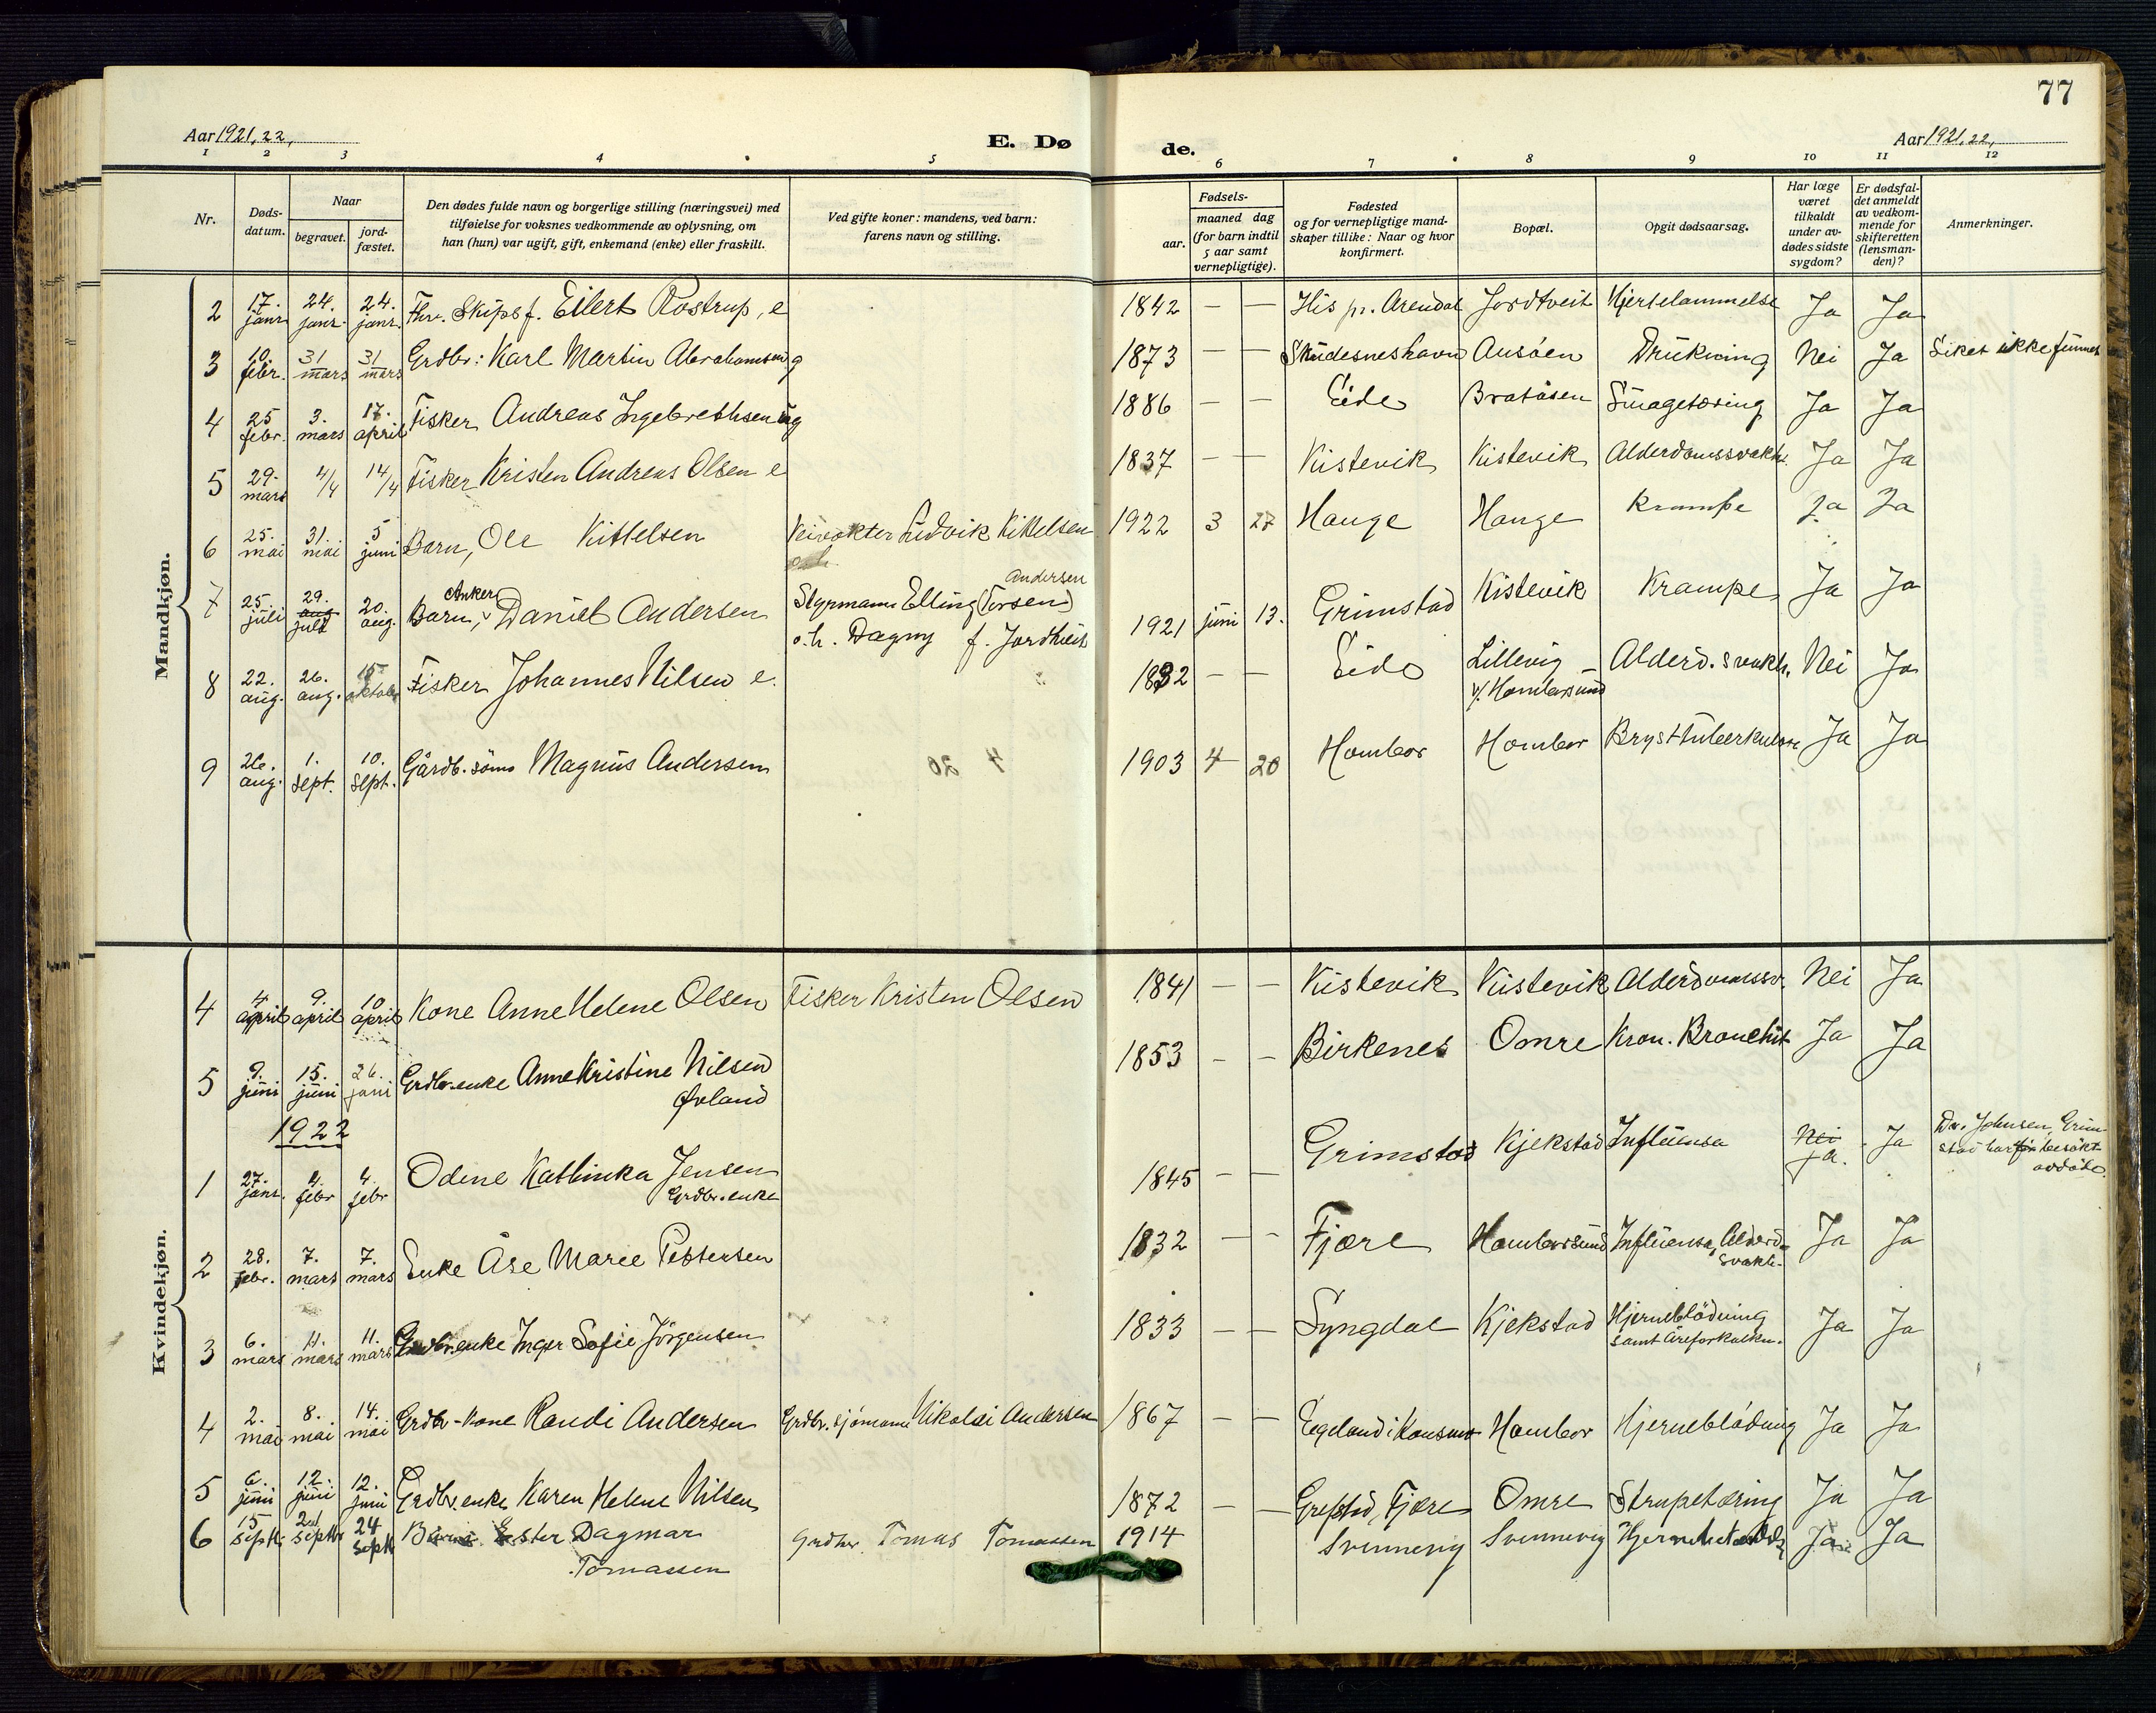 77
Aar 1921, 22,
E. Dø
de.
Aar 1921, 22,
1 2 3 4 5 6 7 8 9 10 11 12
Nr.
Døds-
datum.
Naar
begravet.
jord-
fæstet.
Den dødes fulde navn og borgerlige stilling (næringsvei) med
tilføielse for voksnes vedkommende av oplysning, om
han (hun) var ugift, gift, enkemand (enke) eller fraskilt.
Ved gifte koner: mandens, ved barn:
farens navn og stilling.
Fødsels-
aar.
maaned dag
(for barn indtil
5 aar samt
vernepligtige).
Fødested
og for vernepligtige mand-
skaper tillike: Naar og hvor
konfirmert.
Bopæl.
Opgit dødsaarsag.
Har læge
været
tilkaldt
under av-
dødes sidste
sygdom?
Er dødsfal-
det anmeldt
av vedkom-
mende for
skifteretten
(lensman-
den)?
Anmerkninger.
Mandkjøn.
2 17. janr. 24. janr. 24. janr. Fhv. Skipsf. Eilert Rostrup, e 1842 — — His pr. Arendal Jordtveit Hjertelammelse Ja Ja
3 10. febr. 31 mars 31 mars Grdbr: Karl Martin Abrahamsen g 1873 — — Skudesneshavn Ausöen Drukning Nei Ja Liket ikke funnet
4 25 febr. 3. mars 17. april Fisker Andreas Ingebrethsen ug 1886 — — Eide Bratåsen Smagetæring Ja Ja
5 29. mars 4/4 14/4 Fisker Kristen Andreas Olsen e 1837 — — Kistevik Kistevik Alderdomssvakh. Ja Ja
6 25. mai 31. mai 5 juni Barn, Ole Kittelsen Veivokter Ludvik Kittelsen 1922 3 27 Hauge Hauge Krampe Ja Ja
7 25. juli 29. aug juli 20. aug. Barn, Anker Daniel Andersen Styrmann Elling (Torsen) Andersen
o. h. Dagny f. Jordtveit 1921 juni 13. Grimstad Kistevik Krampe Ja Ja
8 22. aug. 26. aug. 15 oktober Fisker Johannes Nilsen e. 1832 — — Eide Lillevig —
v/. Homborsund Alderd. svakh. Nei Ja
9 26. aug. 1. sept. 10. sept. Gårdb. søns Magnus Andersen 1903 4 20 Hombor Hombor Brysttuberkulose Ja Ja
Kvindekjøn.
4 4 april 9. april 10 april Kone Anne Helene Olsen Fisker Kristen Olsen 1841 — — Kistevik Kistevik Alderdomssv. Nei Ja
5 9. juni 15. juni 26. juni Grdbr.enke Anne Kristine Nilsen
Øvland 1853 — — Birkenes Omre Kron. Bronchit Ja Ja
1922
1 27. janr. 4. febr 4. febr Odine Kathinka Jensen
Grdbr. enke 1845 — — Grimstad Kjekstad Influensa Nei Ja. Ja Dr. Johnsen, Grim-
stad har besøkt
avdøde.
2 28. febr. 7. mars 7. mars Enke Åse Marie Pettersen 1832 — — Fjære Homborsund Influensa, Alderd.
svakh. Ja Ja
3 6. mars 11. mars 11. mars Grdbr.enke Inger Sofie Jörgensen 1833 — — Lyngdal Kjekstad Hjerneblödning
samt åreforkalkn. Ja Ja
4 2. mai 8. mai 14. mai Grdbr-kone Randi Andersen Grdbr. sjömann Nikolai Andersen 1867 — — Egeland i Konsmo Hombor Hjerneblödning Ja Ja
5 6. juni 12. juni 12. juni Grdbr.enke Karen Helene Nilsen 1872 — — Grefstad, Fjære Omre Strupetæring Ja Ja
6 15 septbr 21 septbr 24 septbr Barn Ester Dagmar
Tomassen Grdbr. Tomas Tomassen 1914 Svennevig Svennevig Ja Ja